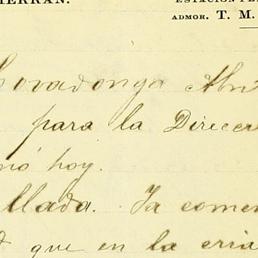 HERRAN.
ESTACION
ADMOR. T. M.
Covadonga Abri
para la Direcc
nó hoy.
llada. Ya comen
que en la cria